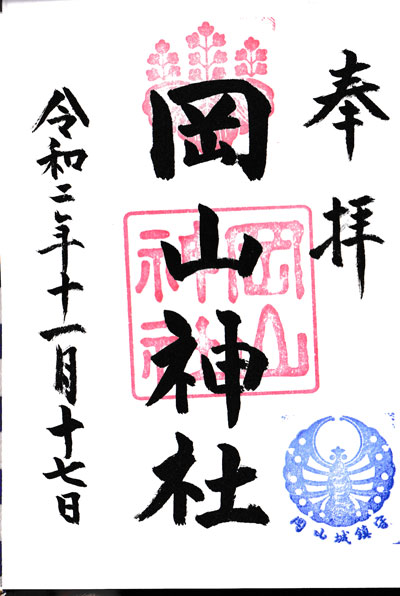 奉拝
岡山神社
岡山神社
岡山城鎮守
令和二年十一月十七日